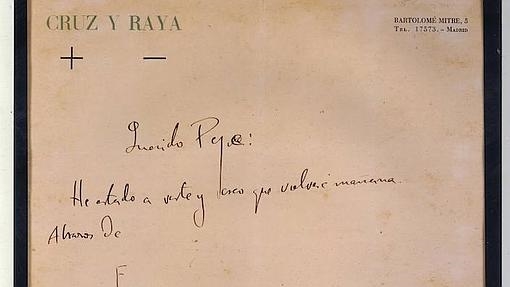 CRUZ Y RAYA
+ −
BARTOLOMÉ MITRE, 5
TEL. 17573. – MADRID
Querido Pepe:
He estado a verte y creo que volveré mañana.
Abrazos De
F